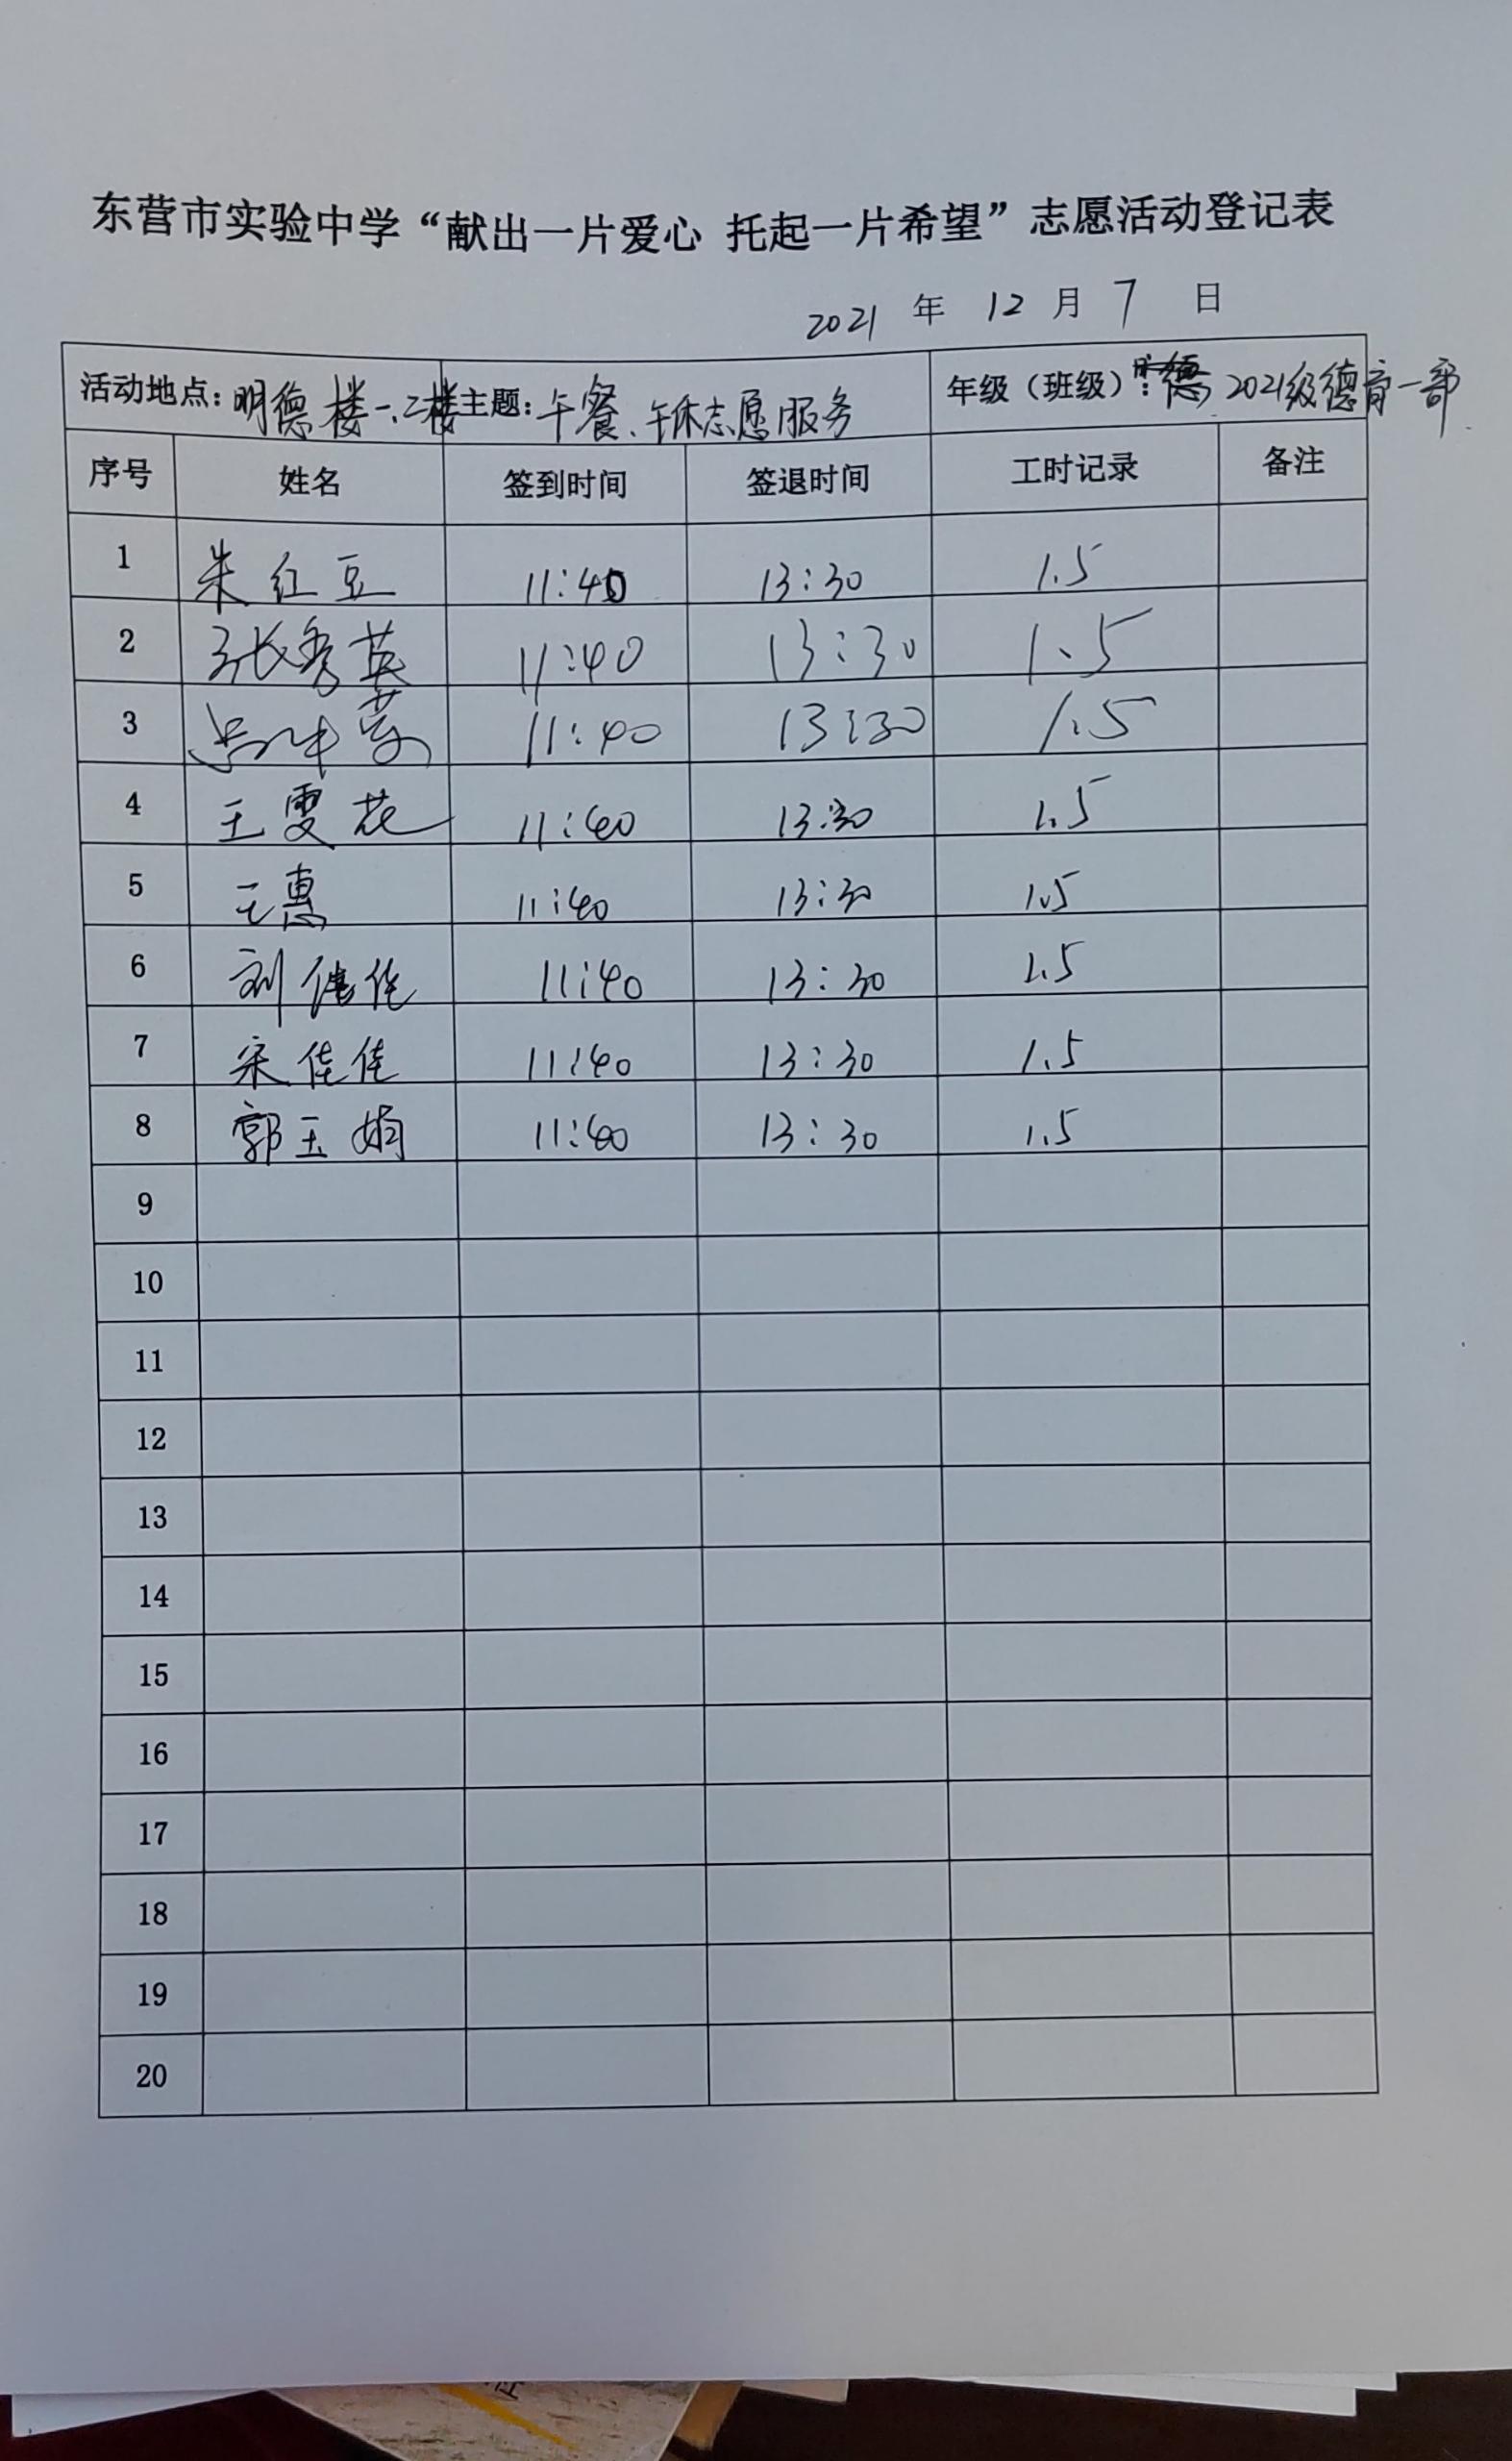 东营市实验中学“献出一片爱心 托起一片希望”志愿活动登记表
2021 年 12 月 7 日
活动地点：明德楼一、二楼 主题：午餐、午休志愿服务 年级（班级）：2021级德育一部
序号 姓名 签到时间 签退时间 工时记录 备注
1 朱红豆 11:40 13:30 1.5
2 张秀英 11:40 13:30 1.5
3 11:40 13:30 1.5
4 王雯花 11:40 13:30 1.5
5 王惠 11:40 13:30 1.5
6 刘 11:40 13:30 1.5
7 宋佳佳 11:40 13:30 1.5
8 郭玉娟 11:40 13:30 1.5
9
10
11
12
13
14
15
16
17
18
19
20